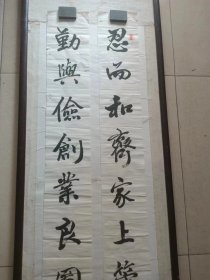 忍而和齊家上策
勤與儉創業良圖